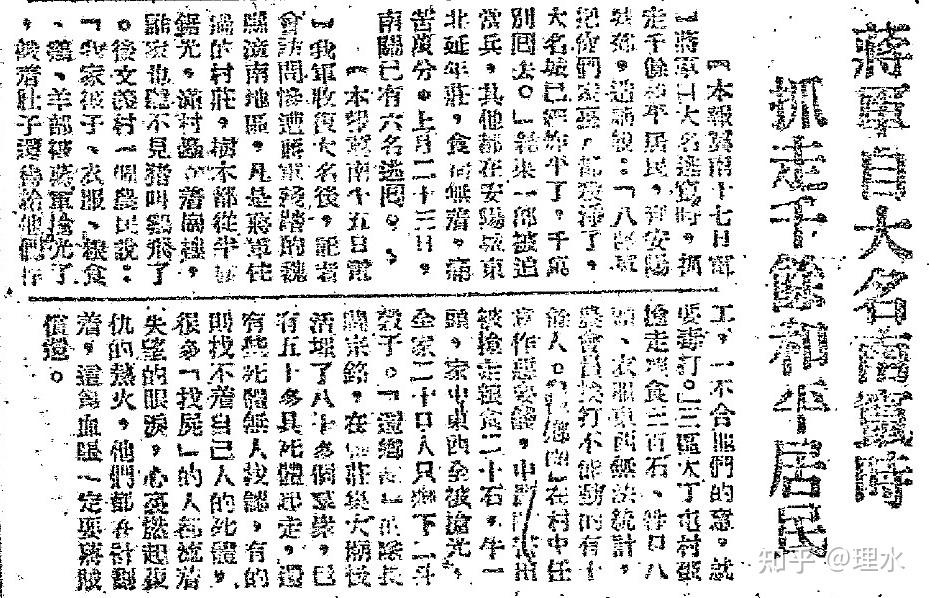 蔣軍自大名南竄時
抓走千餘和平居民
【本報冀南十七日電
】蔣軍自大名逃竄時，抓
走千餘和平居民，
大名城已經炸平了，千萬
別回去。」結果一部被追
當兵，其他都在安陽以東
北延年莊，食宿無着，痛
苦萬分。上月二十三日，
南關已有六名逃回。
【本報冀南十五日電
】我軍收復大名後，記者
會訪問慘遭蔣軍殘踏的魏
縣漳南地區，凡是蔣軍住
過的村莊，樹木都從半
鋸光，滿村
誰家也聽不見猪叫鷄飛了
。後文義村一個農民說：
「我家被子、衣服、糧食
、鷄、羊都被蔣軍搶光了
，餓着肚子還得給他們作
工，一不合他們的意，就
要毒打。」三區大丁屯村
搶走糧食三百石、牲口八
頭、衣服東西無法統計，
農會員被打不能動的有十
餘人。「還鄉團」在村中任
意作惡
被搶走糧食二十石，牛一
頭，家中東西全被搶光，
全家二十口人只剩下二斗
穀子。「還鄉團」的隊長
活埋了八十多個羣衆，已
有五十多具死體起走，還
有些死體無人找認，有的
則找不着自己人的死體，
很多「找屍」的人都流着
失望的眼淚，心裏燃起復
仇的熱火，他們都在計劃
着，這筆血賬一定要蔣賊
償還。
知乎 @理水